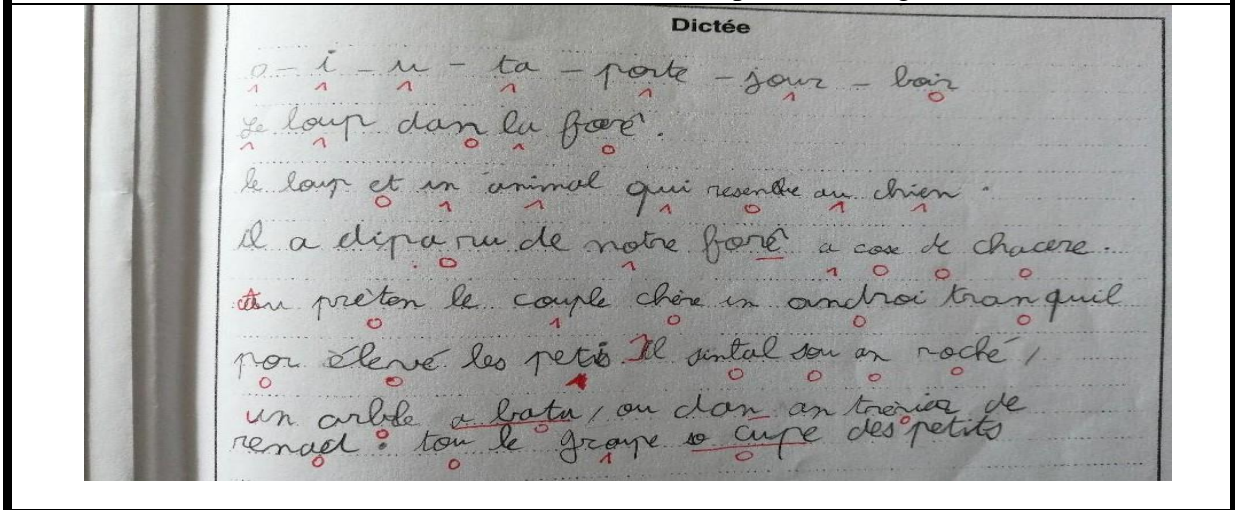 Dictée
o - i - u - ta - porte - jour - boir
Le loup dan la foré.
le loup et un animal qui resenble au chien.
il a diparu de notre foré a cose de chacere.
Au prèten le couple chère un androi tranquil
por élevé les petis Il sintal sou an roché,
un arble a batu, ou dan an trérier de
renael : tou le groupe so cupe des petits